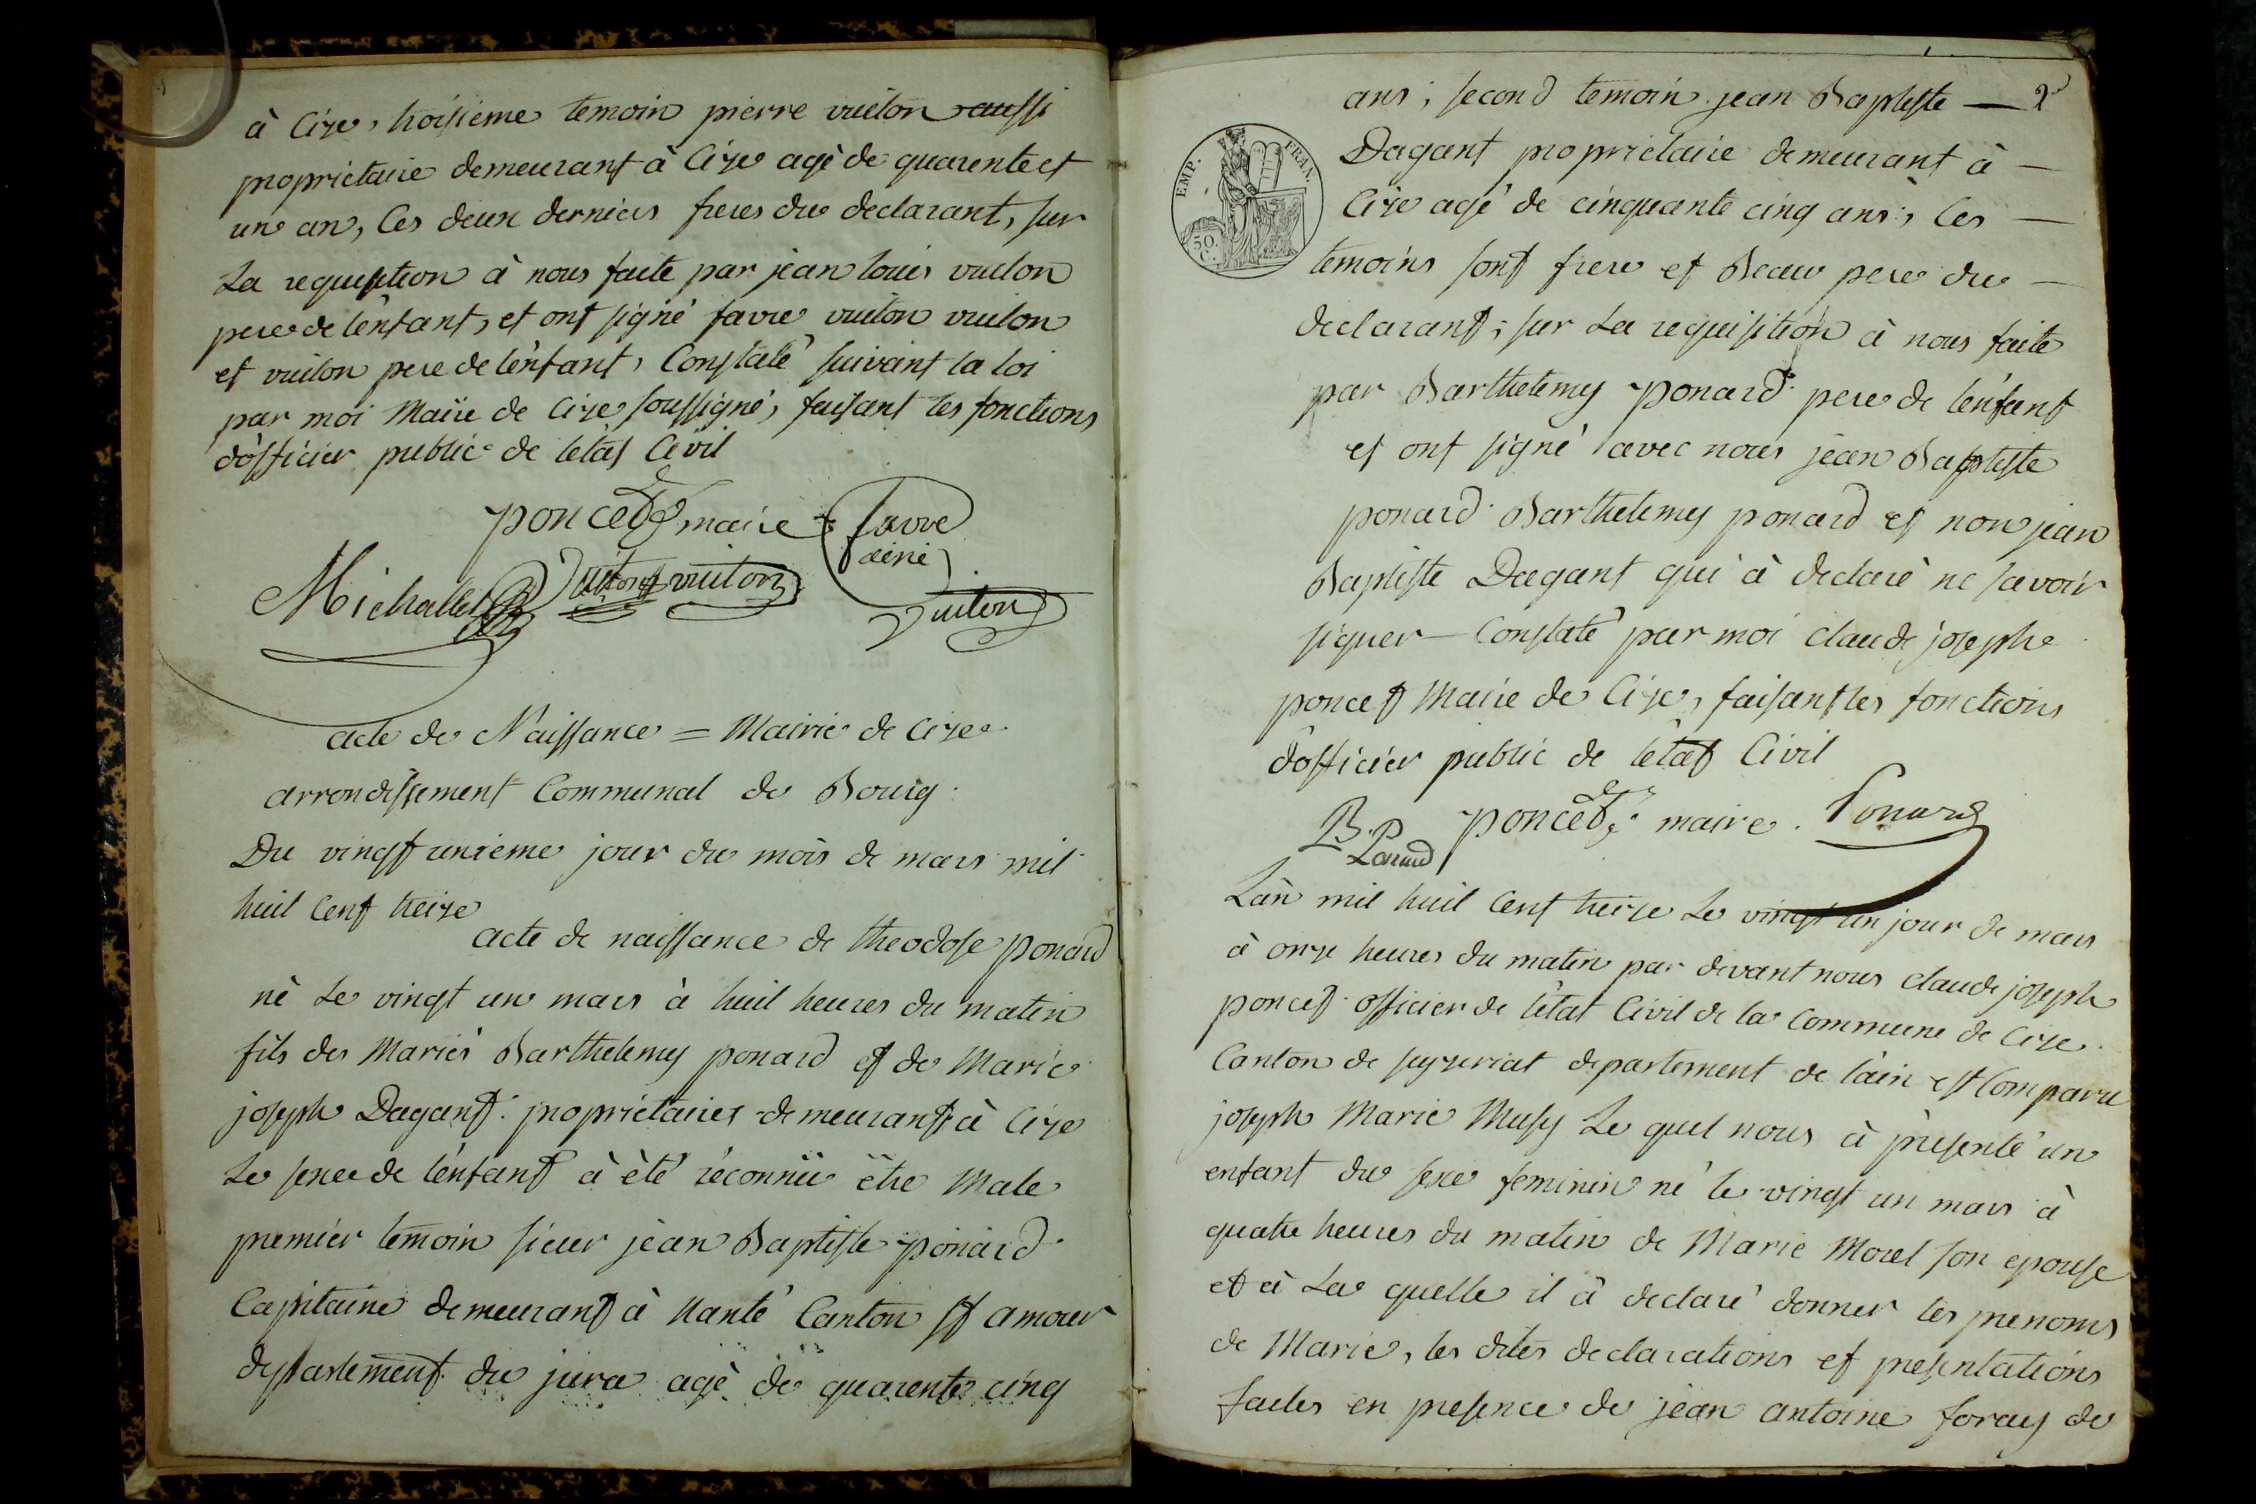 à Cize, troisieme temoin pierre vuiton aussi
proprietaire demeurant à Cize agè de quarente et
un an, Ces deux derniers freres du declarant, sur
La requisition à nous faite par jean louis vuiton
pere de lénfant, et ont signé favre vuiton vuiton
et vuiton pere de lénfant, Constaté suivant la loi
par moi Maire de Cize soussigné, faisant les fonctions
dófficier public de letat Civil
poncet maire favre
ainé
Michallet vuiton vuiton
vuiton
acte de Naissance = Mairie de Cize
arrondissement Communal de Bourg
Du vingt unieme jour du mois de mars mil
huit Cent treize
acte de naissance de theodose ponard
né Le vingt un mars à huit heures du matin
fils des Mariés Barthelemy ponard et de Marie
joseph Dagant proprietaires demeurant à Cize
Le sexe de lénfant à èté réconnu être Male
premier temoin sieur jean Baptiste ponard
Capitaine demeurant à Nanté Canton st amour
departement du jura agè de quarente cinq
ans ; second temoin jean Baptiste — 2
Dagant proprietaire demeurant à —
Cize agé de cinquante cinq ans, Ces —
temoins sont frere et Beau pere du —
declarant ; sur La requisition à nous faite
par Barthelemy ponard pere de lénfant
et ont signé avec nous jean Baptiste
ponard Barthelemy ponard et non jean
Baptiste Dagant qui à declaré ne savoir
signer — Constaté par moi claude josephe
poncet Maire de Cize, faisant les fonctions
dófficier public de létat Civil
B. P poncet maire. Ponard
Ponard
EMP. FRAN.
50.
C.
Lán mil huit Cent treize Le vingt un jour de mars
à onze heures du matin par devant nous claude joseph
poncet officier de létat Civil de la Commune de Cize
Canton de seyzeriat departement de láin est Comparu
joseph Marie Musy Le quel nous à présenté un
enfant du sexe feminin né le vingt un mars à
quatre heures du matin de Marie Morel son epouse
et à La quelle il à declaré donner les prenoms
de Marie, les dites declarations et presentations
faites en presence de jean antoine foray de